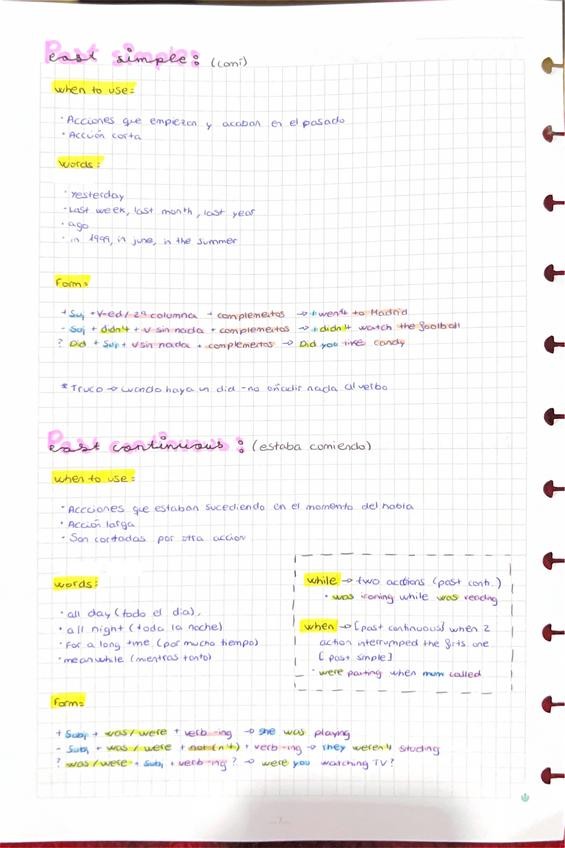 Past simple: (comí)
when to use:
· Acciones que empiezan y acaban en el pasado
· Acción corta
words:
· yesterday
· Last week, last month, last year
· ago
· in 1999, in june, in the summer
Form:
+ Suj + V-ed/2ª columna + complementos → I went to Madrid
- Suj + didn't + V sin nada + complementos → I didn't watch the football
? Did + Suj + V sin nada + complementos → Did you like candy
* Truco → cuando haya un did - no añadir nada al verbo
Past continuous: (estaba comiendo)
when to use:
· Acciones que estaban sucediendo en el momento del habla
· Acción larga
· Son cortadas por otra acción
words:
· all day (todo el dia),
· all night (toda la noche)
· For a long time (por mucho tiempo)
· meanwhile (mientras tanto)
while → two actions (past cont..)
· was ironing while was reading
when → [past continuous] when 2
action interrumped the firts one
[past simple]
· were parting when mum called
Form:
+ Subj + was/were + verb-ing → she was playing
- Subj + was/were + not (n't) + verb-ing → They weren't studing
? was/were + Subj + verb-ing? → were you watching TV?